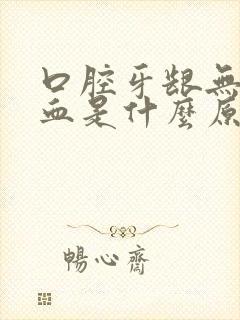 口腔牙龈無
血是什麼原
暢心齋